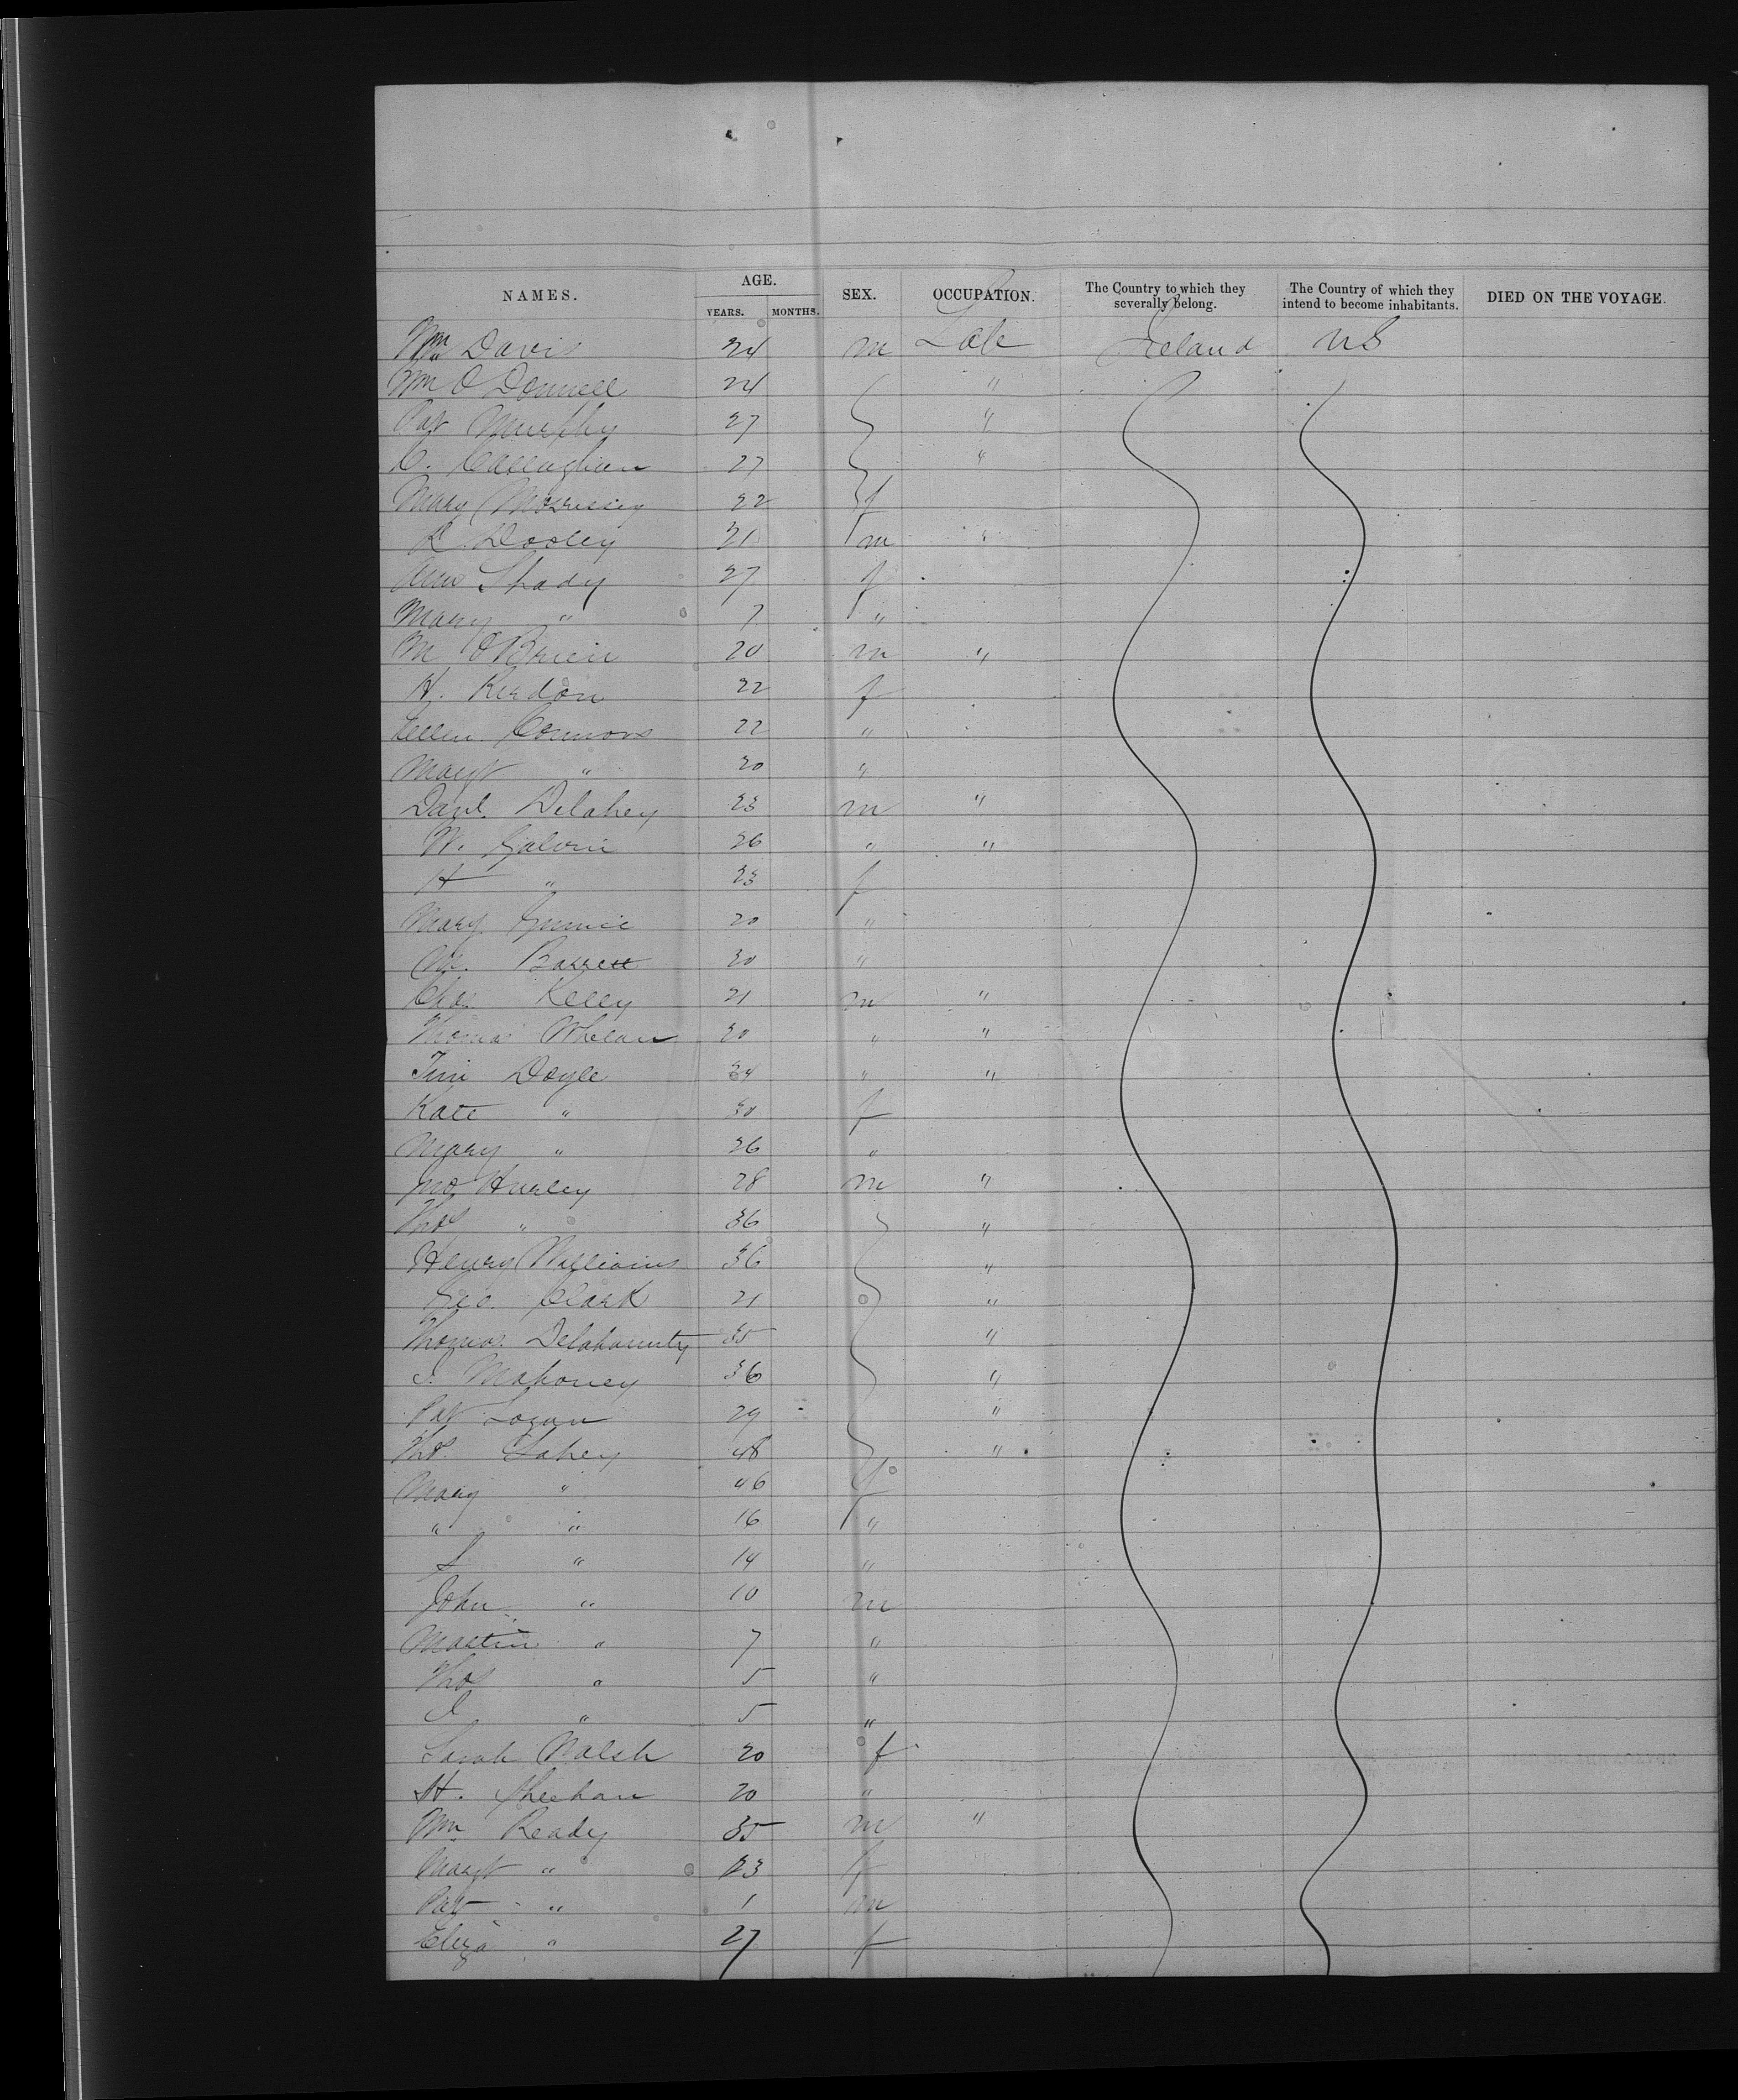 NAMES. AGE. YEARS. MONTHS. SEX. OCCUPATION. The Country to which they severally belong. The Country of which they intend to become inhabitants. DIED ON THE VOYAGE.
Wm Davis 24 m Lab Ireland US
Wm O Donnell 24 "
Pat Murphy 27 "
C. Callaghan 27 "
Mary Morrissey 22 f
D. Dooley 21 m "
Ann Shady 27 f
Mary " 7 "
M O'Brien 20 m "
H. Reardon 22 f
Ellen Connors 22 "
Margt " 20 "
Danl. Delahey 23 m "
W. Galvin 26 " "
H " 23 f
Mary 20 "
M. Barrett 20 "
Chs. Kelly 21 m "
Thomas Whelan 20 " "
Tim Doyle 34 " "
Kate " 30 f
Mary " 26 "
Jno Hurley 28 m "
Thos " 36 "
Henry Williams 36 "
Geo. Clark 21 "
Thomas Delahaunty 35 "
J. Mahoney 36 "
Pat Logan 29 "
Thos. Lahey 48 "
Mary " 46 f
" " 16 "
S " 14 "
John " 10 m
Martin " 7 "
Thos " 5 "
J " 5 "
Sarah Walsh 20 f
H. Sheehan 20 "
Wm Ready 35 m "
Margt " 23 f
Pat " 1 m
Eliza " 27 f